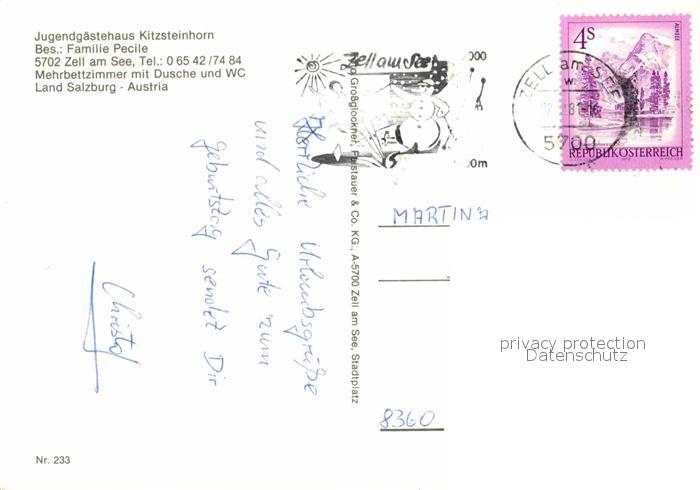 Jugendgästehaus Kitzsteinhorn
Bes.: Familie Pecile
5702 Zell am See, Tel.: 0 65 42 / 74 84
Mehrbettzimmer mit Dusche und WC
Land Salzburg - Austria
Zell am See
000
00m
ZELL am SEE
5700
ALMSEE
4S
REPUBLIK ÖSTERREICH
Herzliche Urlaubsgrüße
und alles Gute zum
Geburtstag sendet Dir
Christof
Großglockner, & Co. KG., A-5700 Zell am See, Stadtplatz
MARTINA
privacy protection
Datenschutz
8360
Nr. 233